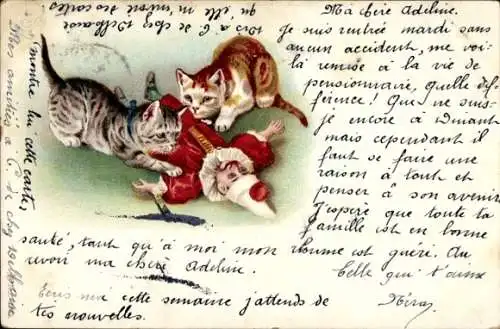 Ma chère Adeline.
Je suis rentrée mardi sans
aucun accident, me voi-
là remise à la vie de
pensionnaire, quelle dif-
férence! Que ne suis-
je encore à Dinant
mais cependant il
faut se faire une
raison à tout et
penser à son avenir
J'espère que toute ta
famille est en bonne
santé, tant qu'à moi mon rhume est guéri. Au
revoir ma chère Adeline.
Celle qui t'aime
Ecris moi cette semaine j'attends de
tes nouvelles.
Mes amitiés à C. de chez
montre lui cette carte,
Dis à C. de chez
qu'elle m'envoie des cartes